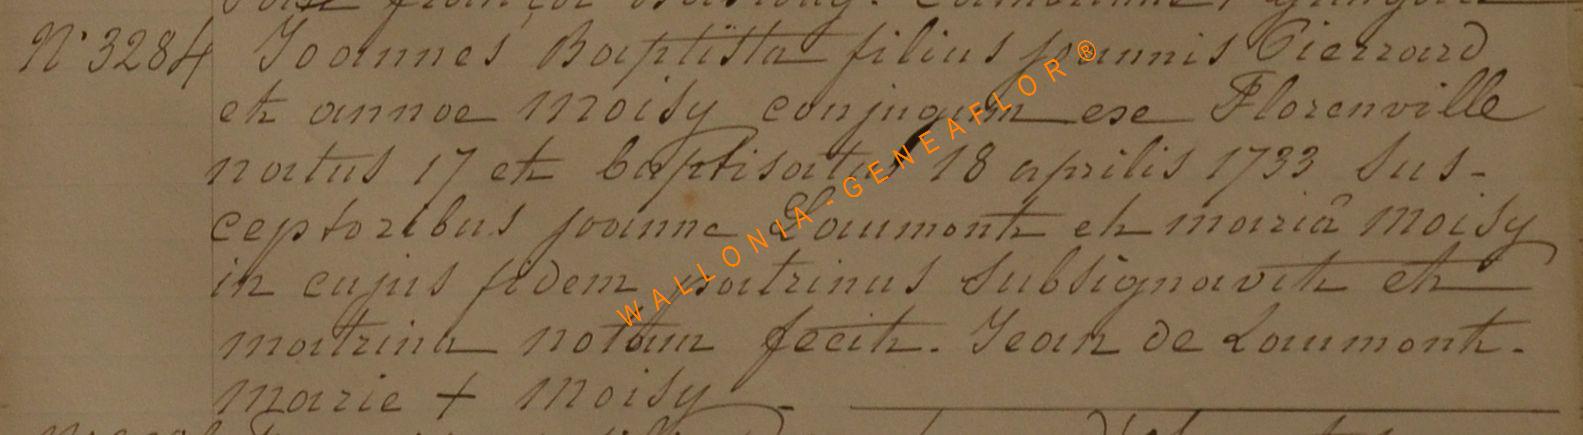 N° 3284 Joannes Baptista filius joannis Pierrard
et annoe Moisy conjugum ex Florenville
natus 17 et baptisatus 18 aprilis 1733 Sus-
ceptoribus joanne Laumont et mariâ Moisy
in cujus fidem patrinus subsignavit et
matrina notam fecit. Jean de Laumont.
Marie + Moisy
WALLONIA-GENEAFLOR®